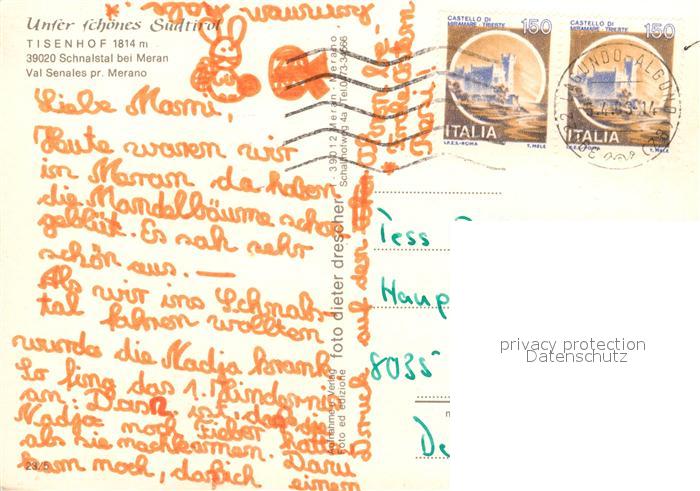 Unser schönes Südtirol
TISENHOF 1814 m
39020 Schnalstal bei Meran
Val Senales pr. Merano
Liebe Mami,
Heute waren wir
in Meran da haben
die Mandelbäume schon
geblüt. Es sah sehr
schön aus. —
Als wir ins Schnals-
tal fahren wollten
wurde die Nadja krank
So fing das 1. Hindernis
an. Dann ist, daß die
Nadja noch Fieber hatte
als sie nachkamen. Dazu
kam noch, daß ich einen
auf der
23/5
Aufnahme u. Verlag
Foto ed edizione
foto dieter drescher
39012 Meran - Merano
Schallhofweg 4a
CASTELLO DI
MIRAMARE - TRIESTE
150
ITALIA
I.P.Z.S.-ROMA
T. MELE
CASTELLO DI
MIRAMARE - TRIESTE
150
ITALIA
I.P.Z.S.-ROMA
T. MELE
LAGUNDO-ALGUND
Tess
Haup
8035
De
privacy protection
Datenschutz